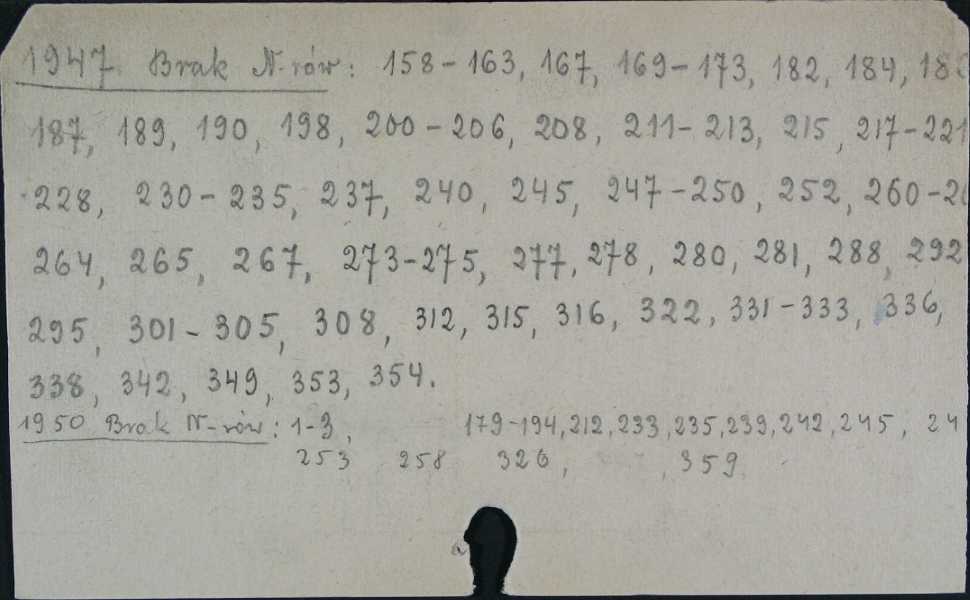 1947. Brak N-rów: 158-163, 167, 169-173, 182, 184,
187, 189, 190, 198, 200-206, 208, 211-213, 215, 217-221
228, 230-235, 237, 240, 245, 247-250, 252,
264, 265, 267, 273-275, 277, 278, 280, 281, 288, 292
295, 301-305, 308, 312, 315, 316, 322, 331-333, 336,
338, 342, 349, 353, 354.
1950 Brak N-rów: 1-3, 179-194, 212, 233, 235, 239, 242, 245,
253 258 326, 359